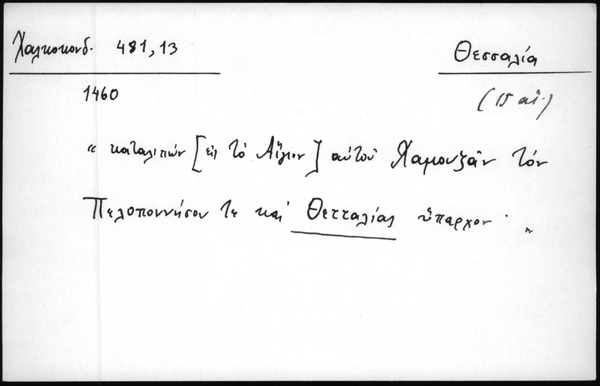 Χαλκοκονδ. 481,13
Θεσσαλία
1460
(15 αἰ.)
" καταλιπὼν [εἰς τὸ Αἴγιον] αὐτοῦ Χαμουζᾶν τὸν
Πελοποννήσου τε καὶ Θετταλίας ὕπαρχον · "